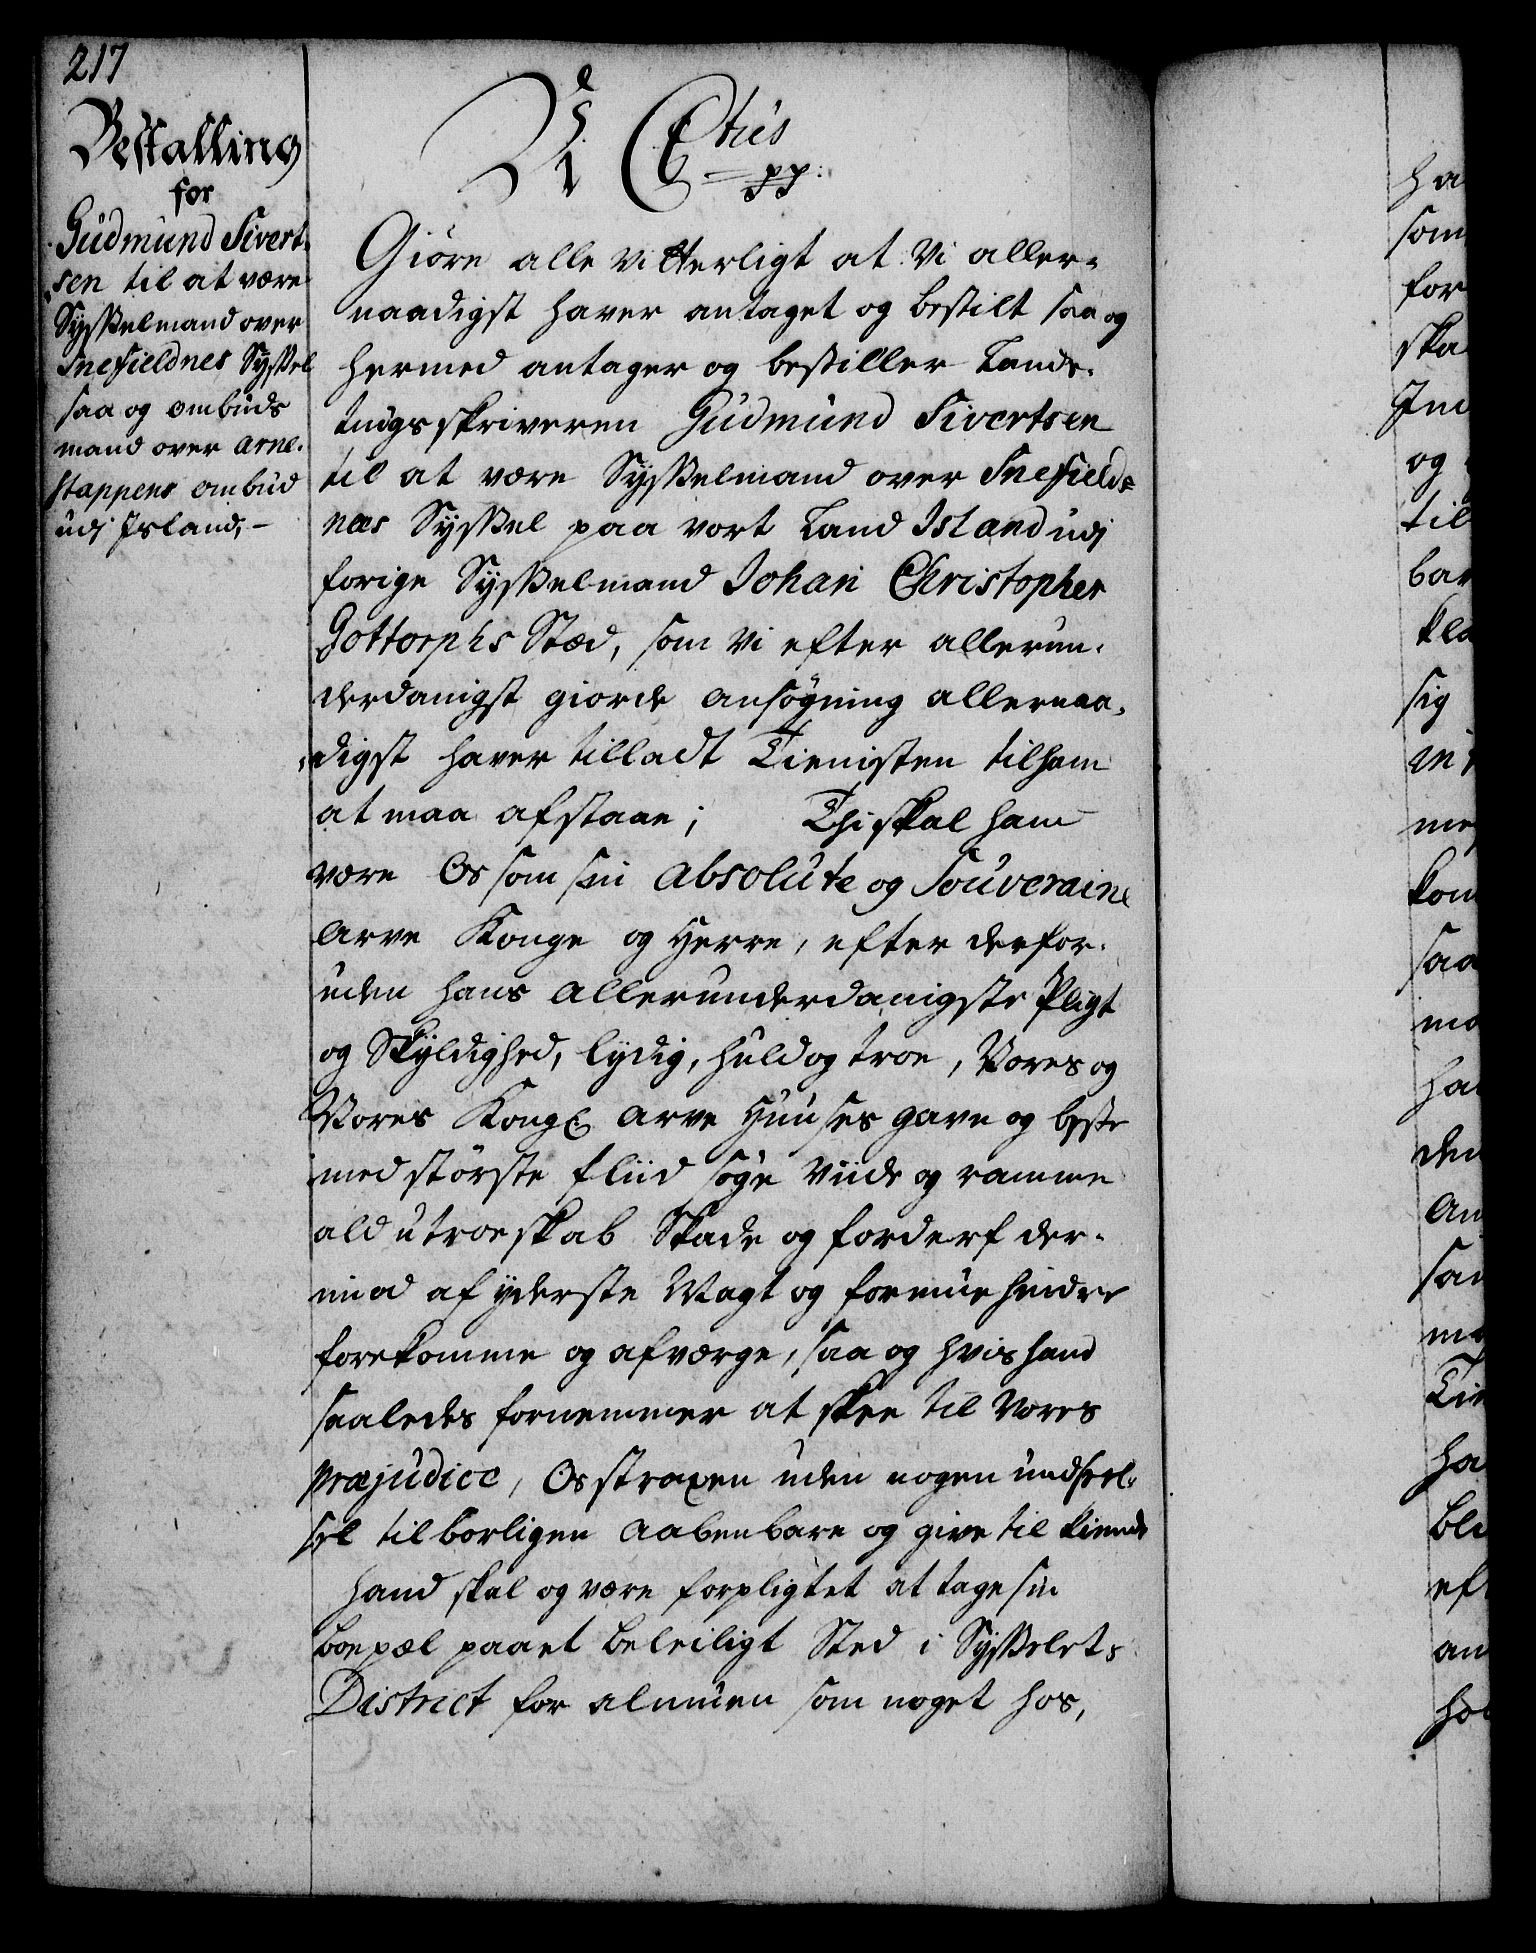 217
Bestalling
for
Gudmund Sivert-
sen til at være
Sysselmand over
Snefieldnes Syssel
saa og ombuds
mand over Arne-
stappens ombud
udj Jsland,-
Vi C 6tus
pp:
Giöre alle vitterligt at Vi aller-
naadigst haver antaget og bestilt saa og
hermed antager og bestiller Lands-
tingsskriveren Gudmund Sivertsen
til at være Sysselmand over Snefields
næs Syssel paa vort Land Island udj
forige Sysselmand Johan Christopher
Gottorphs Stæd, som Vi efter allerun-
derdanigst giorde ansøgning allernaa-
digst haver tilladt Tienisten til ham
at maa afstaae; Thi skal hand
være Os som sin absolute og Souveraine
Arve Konge og Herre, efter derfor-
uden hans allerunderdanigste Pligt
og Skyldighed, lydig, huld og troe, Vores og
Vores Kongl. Arve Huuses gavn og beste
med störste fliid söge viide og ramme
ald utroeskab Skade og forderf der-
imod af yderste Magt og formue hindre
forekomme og afværge, saa og hvis hand
saaledes fornemmer at skee til Vores
præjudice, Os straxen uden nogen undseel-
sel tilborligen aabenbare og give til kiende
Hand skal og være forpligtet at tage sin
boepæl paa et beleiligt Sted i Sysselets
District for almuen som noget hos,
ha
som
for
ska
Ind
og
til
bar
kla
sig
in
me
kom
saa
mo
ha
den
An
san
mo
Tie
ha
ble
eft
an
ho